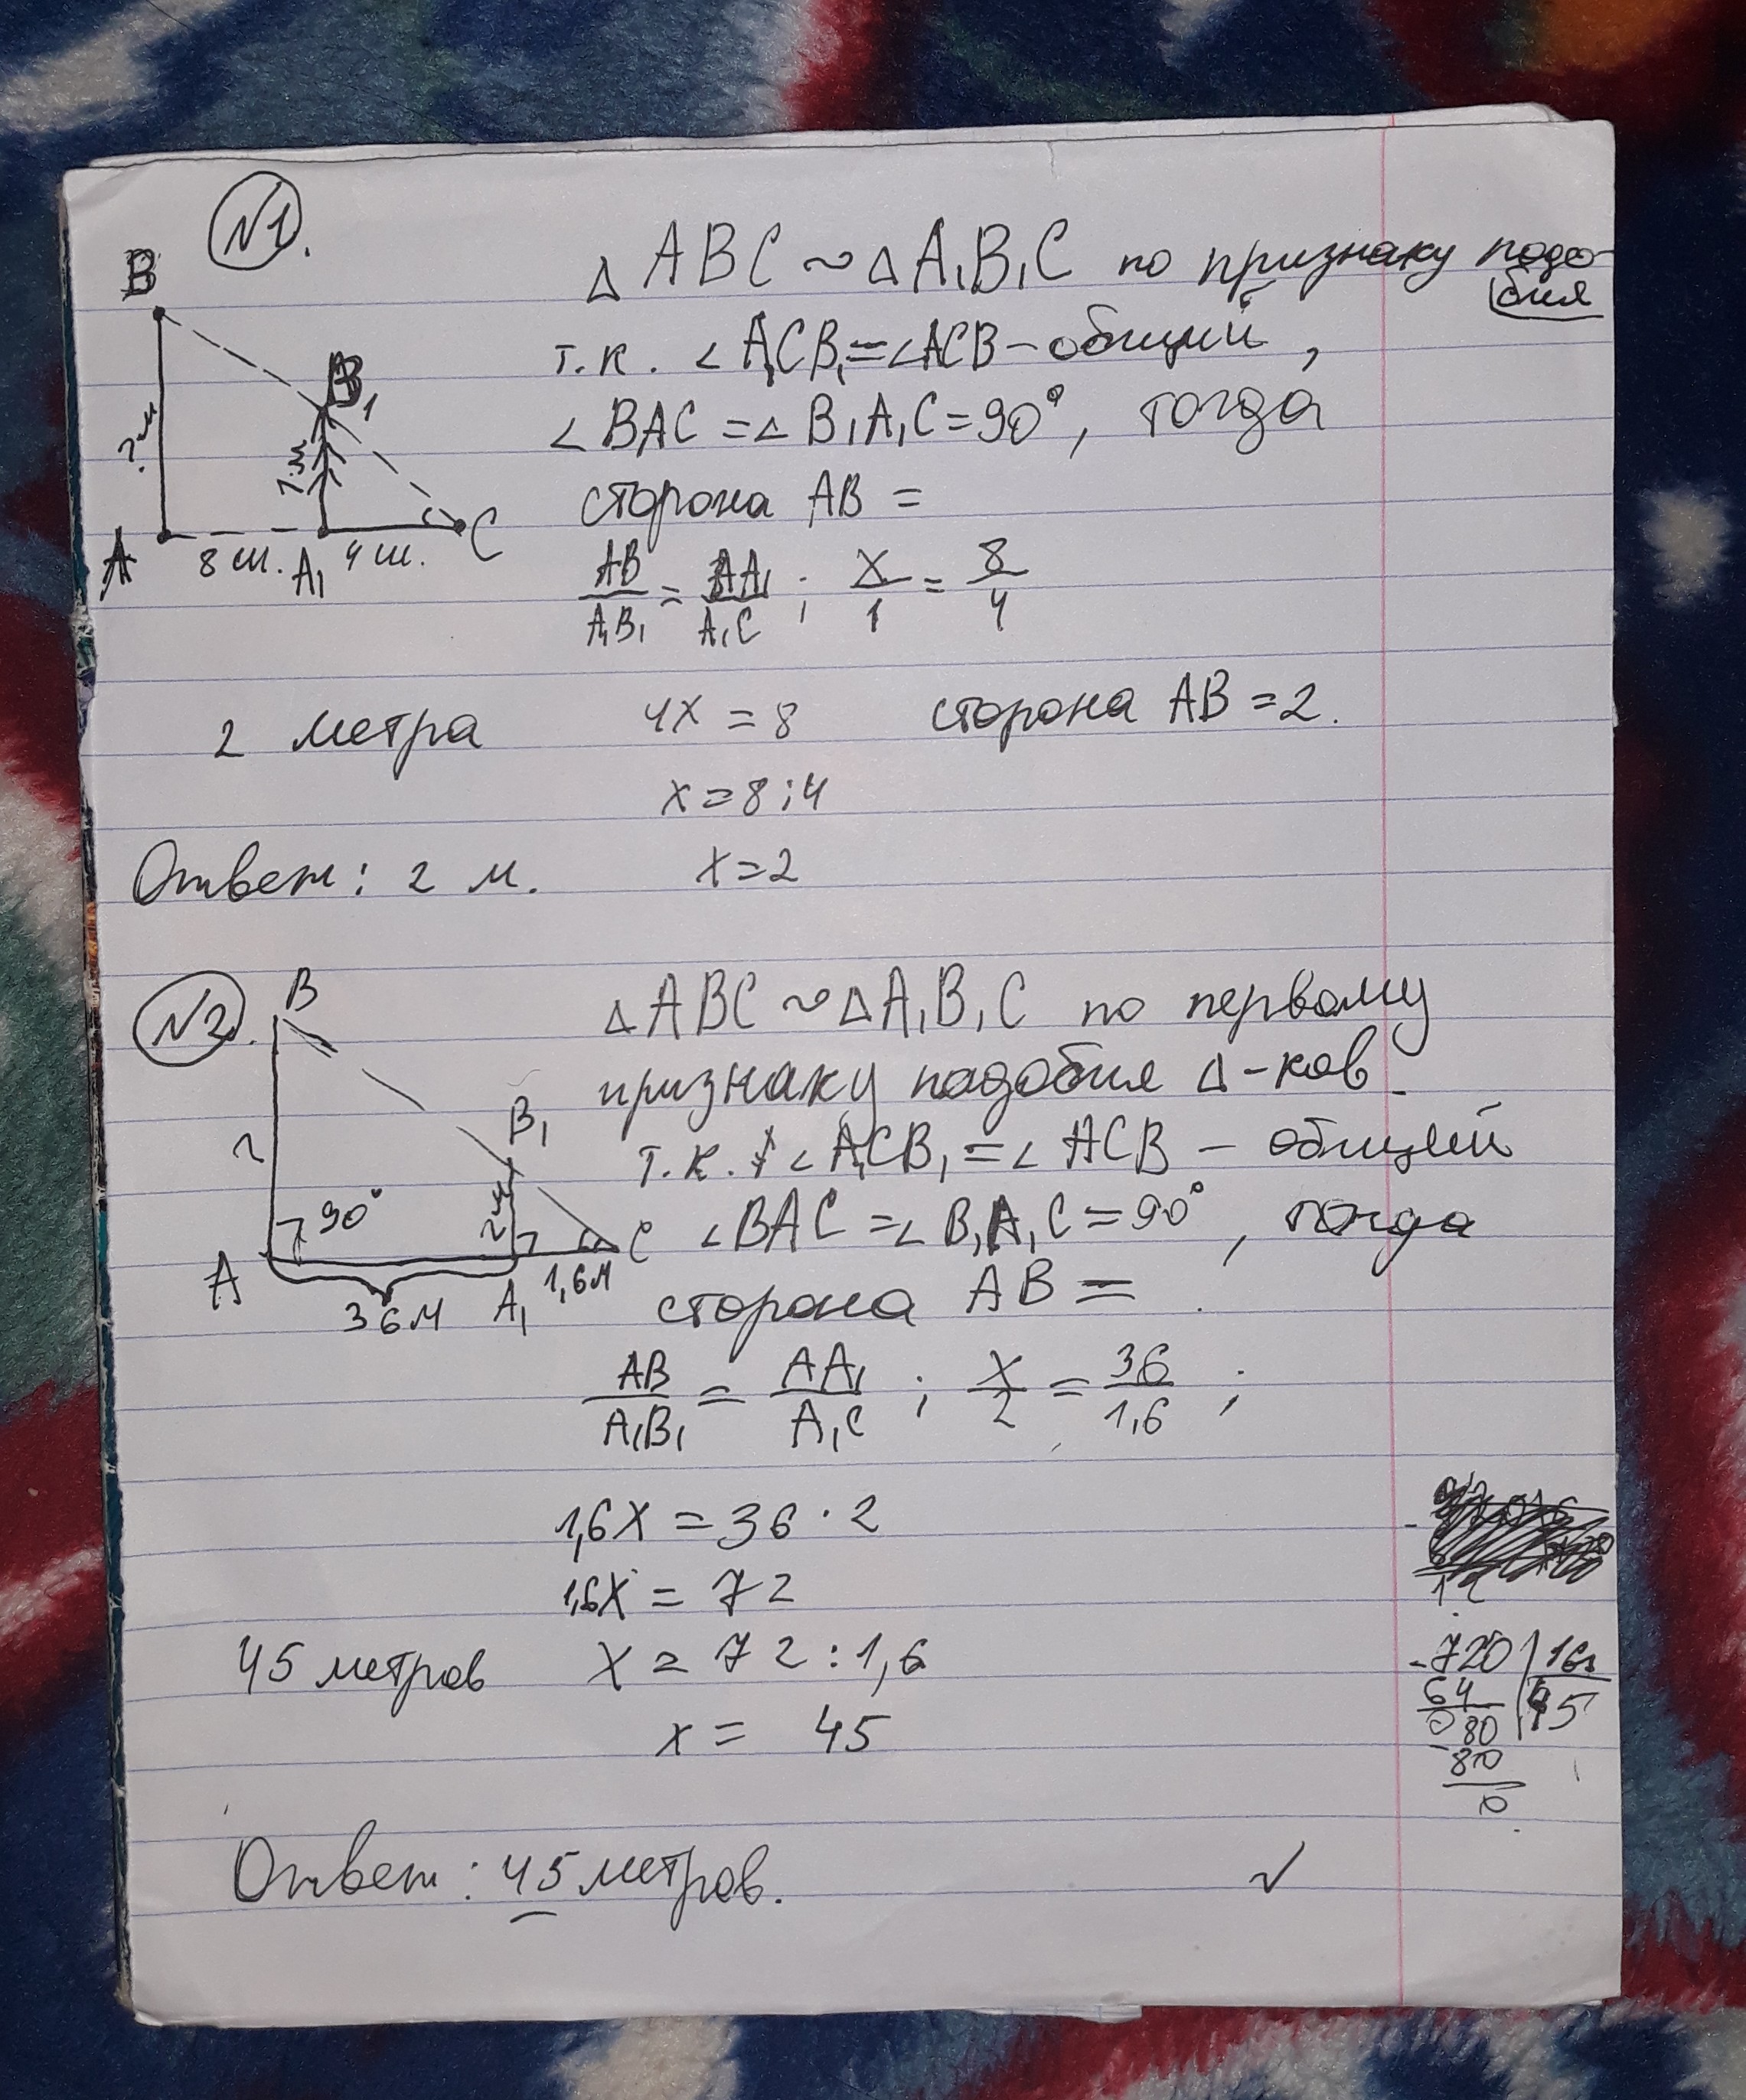 №1.
B
B₁
?м
1м
A
8 ш.
A₁
4 ш.
C
△ ABC ~ △ A₁B₁C по признаку подо-
бия
т.к. ∠ A₁CB₁=∠ACB – общий,
∠ BAC = ∠ B₁A₁C = 90°, тогда
сторона AB =
AB/A₁B₁ = AA₁/A₁C ; x/1 = 8/4
2 метра
4x = 8
сторона AB = 2.
x = 8:4
Ответ: 2 м.
x = 2
№2.
B
B₁
?
90°
2м
A
36м
A₁
1,6м
C
△ABC ~ △A₁B₁C по первому
признаку подобия △-ков
т.к. ∠ A₁CB₁ = ∠ ACB – общий
∠BAC = ∠ B₁A₁C = 90°, тогда
сторона AB =
AB/A₁B₁ = AA₁/A₁C ; x/2 = 36/1,6 ;
1,6x = 36 · 2
1,6x = 72
45 метров
x = 72 : 1,6
x = 45
-720 | 16
64 | 45
080
-80
0
Ответ: 45 метров.
✓